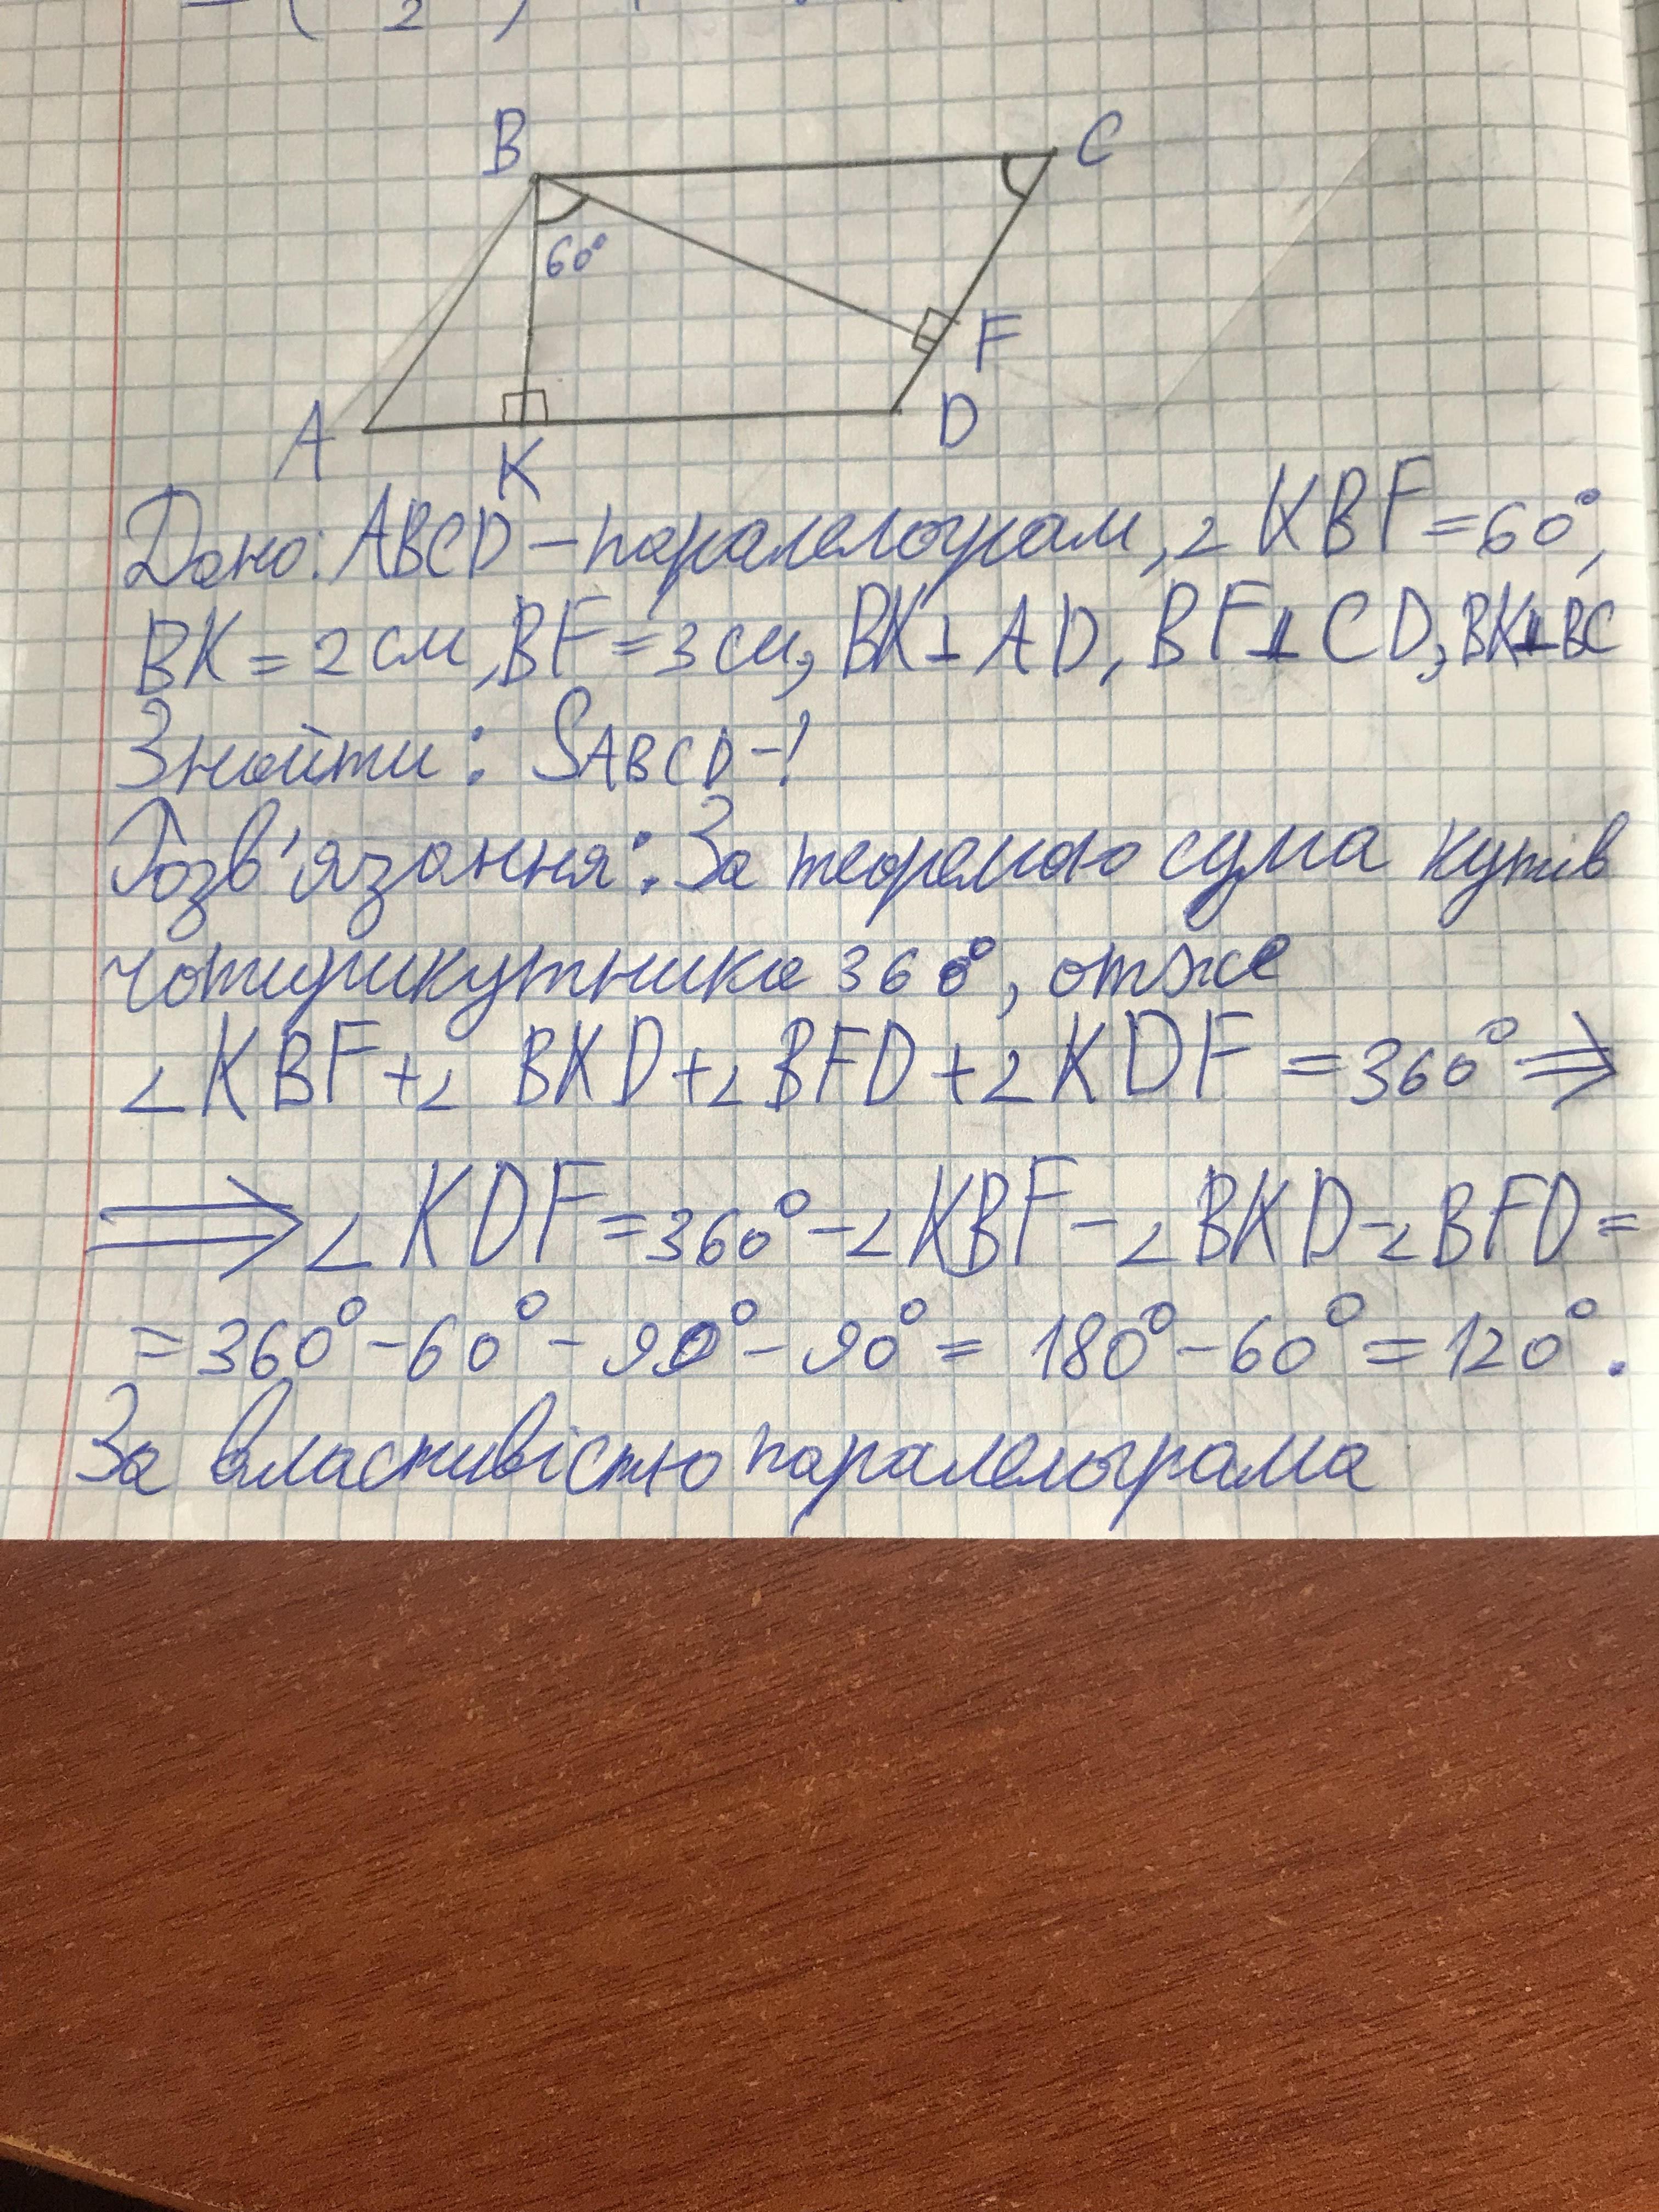 = ( 2 )
B
C
60°
F
A
K
D
Дано: ABCD – паралелограм, ∠KBF = 60°,
BK = 2 см, BF = 3 см, BK ⊥ AD, BF ⊥ CD, BK ⊥ BC
Знайти: SABCD – !
Розв'язання: За теоремою сума кутів
чотирикутника 360°, отже
∠KBF + ∠BKD + ∠BFD + ∠KDF = 360° ⇒
⇒ ∠KDF = 360° – ∠KBF – ∠BKD – ∠BFD =
= 360° – 60° – 90° – 90° = 180° – 60° = 120°.
За властивістю паралелограма